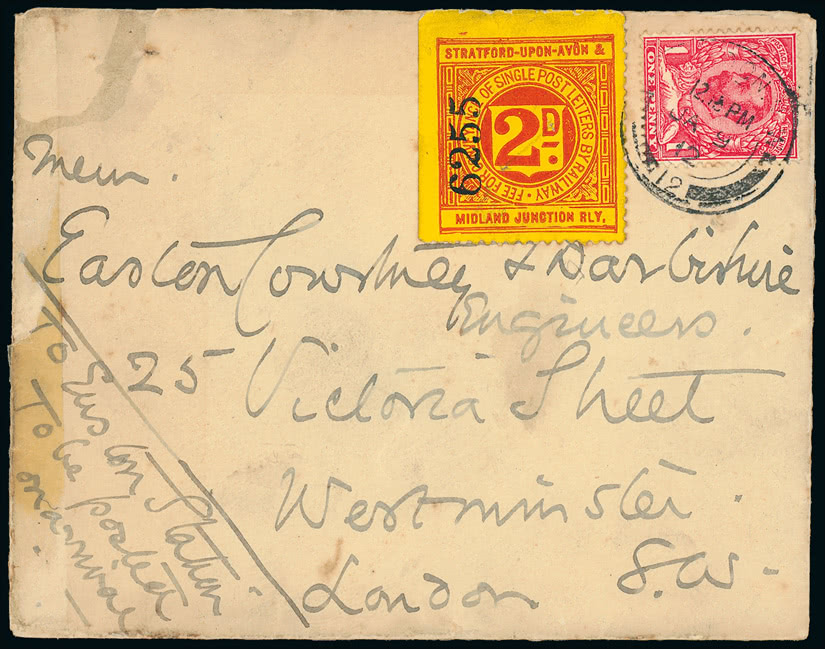 STRATFORD-UPON-AVON &
FEE FOR CONVEYANCE OF SINGLE POST LETTERS BY RAILWAY
2D.
6255
MIDLAND JUNCTION RLY.
POSTAGE
ONE PENNY
12.15 PM
JA 9
12
Messrs.
Easton Courtney & Darbishire
Engineers.
25 Victoria Street
Westminster.
London S.W.
To Euston Station
To be posted
on arrival.